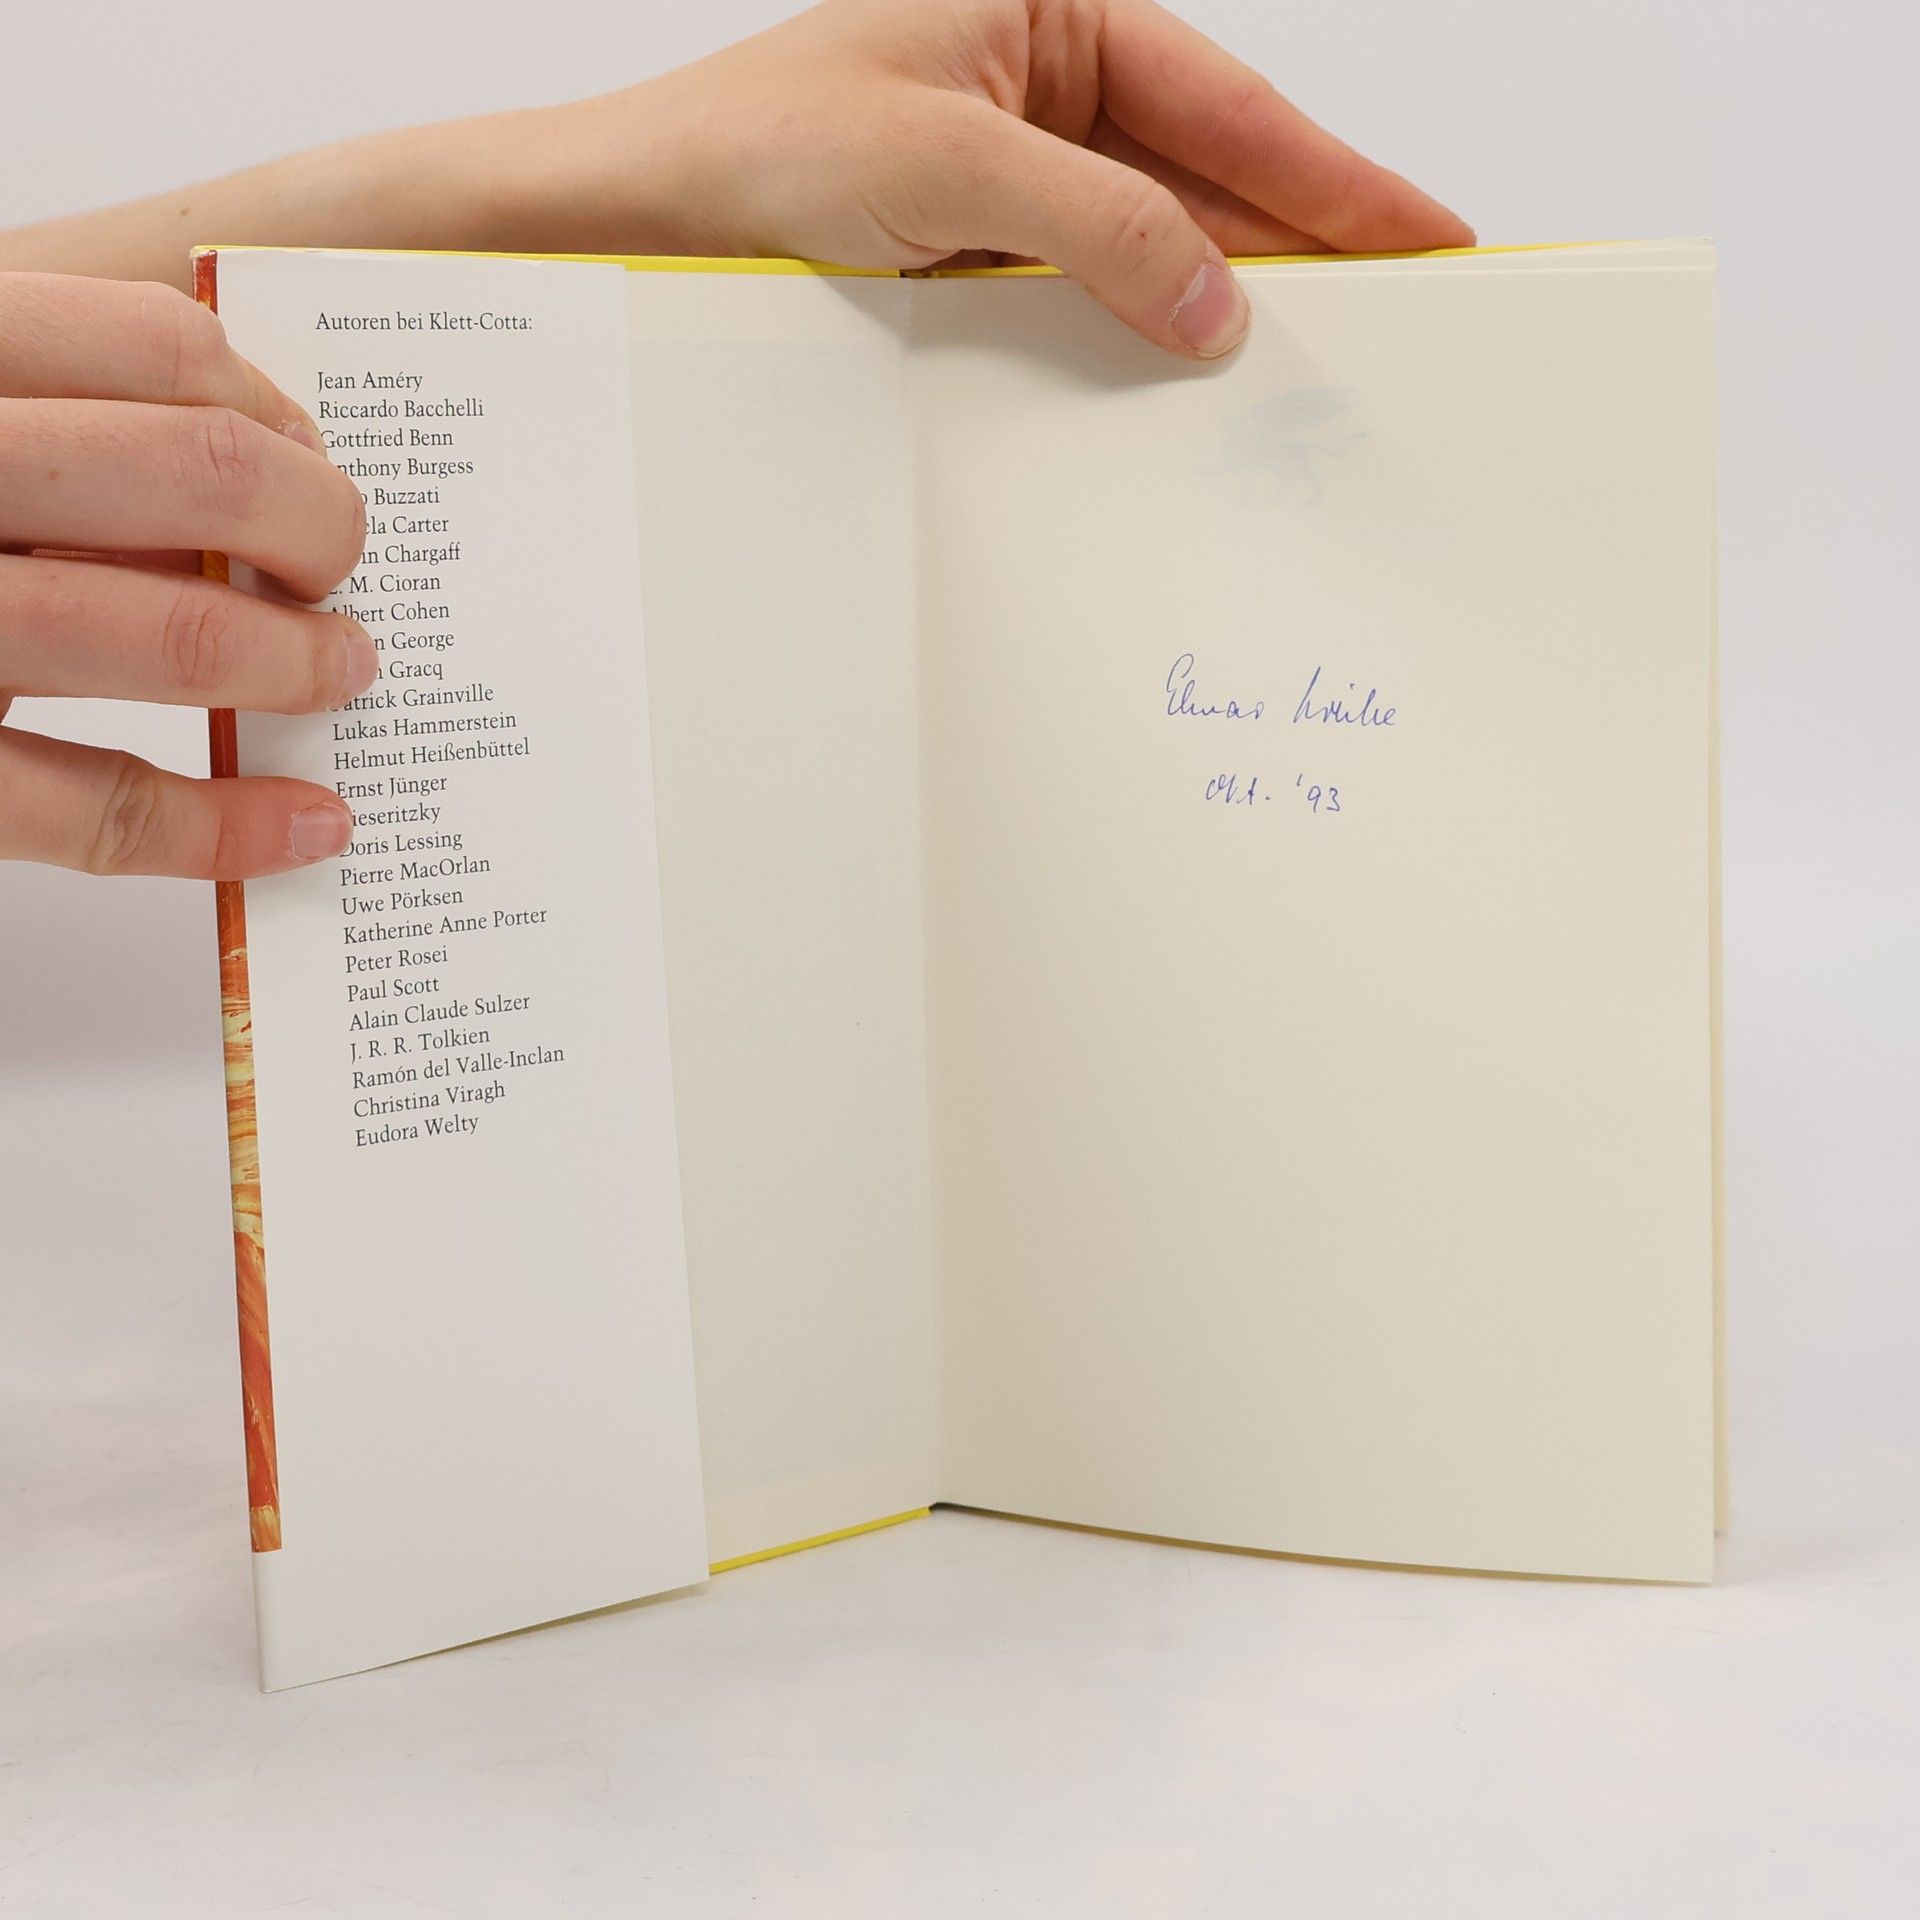 Autoren bei Klett-Cotta:
Jean Améry
Riccardo Bacchelli
Gottfried Benn
nthony Burgess
Buzzati
Carter
Chargaff
M. Cioran
Albert Cohen
George
Gracq
Patrick Grainville
Lukas Hammerstein
Helmut Heißenbüttel
Ernst Jünger
ieseritzky
Doris Lessing
Pierre MacOrlan
Uwe Pörksen
Katherine Anne Porter
Peter Rosei
Paul Scott
Alain Claude Sulzer
J. R. R. Tolkien
Ramón del Valle-Inclan
Christina Viragh
Eudora Welty
Elmar
Okt. '93